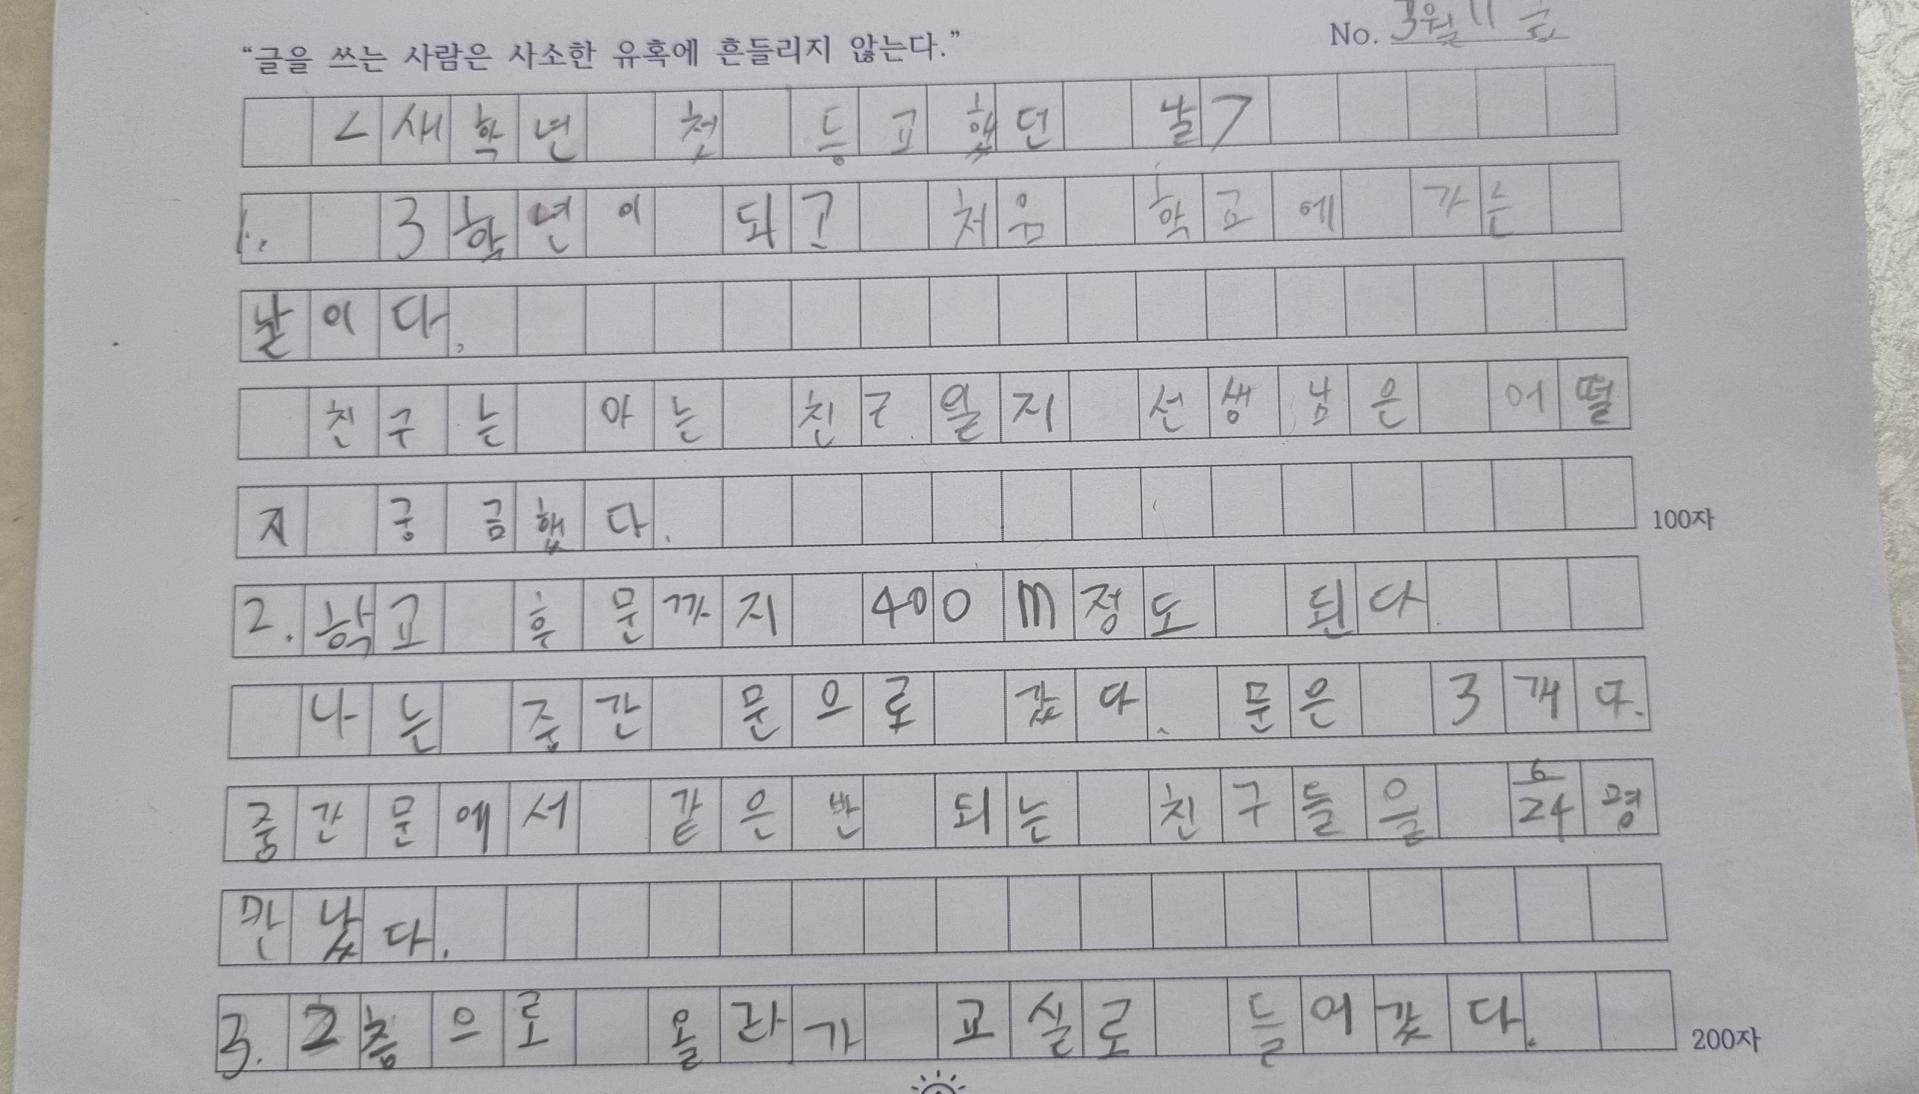 "글을 쓰는 사람은 사소한 유혹에 흔들리지 않는다."
No. 3월 11일
<새학년 첫 등교했던 날>
1. 3학년이 되고 처음 학교에 가는
날이다.
친구는 아는 친구일지 선생님은 어떨
지 궁금했다.
2. 학교 후문까지 400m정도 된다.
나는 중간 문으로 갔다. 문은 3개다.
중간문에서 같은반 되는 친구들을 6/24명
만났다.
3. 2층으로 올라가 교실로 들어갔다.
100자
200자